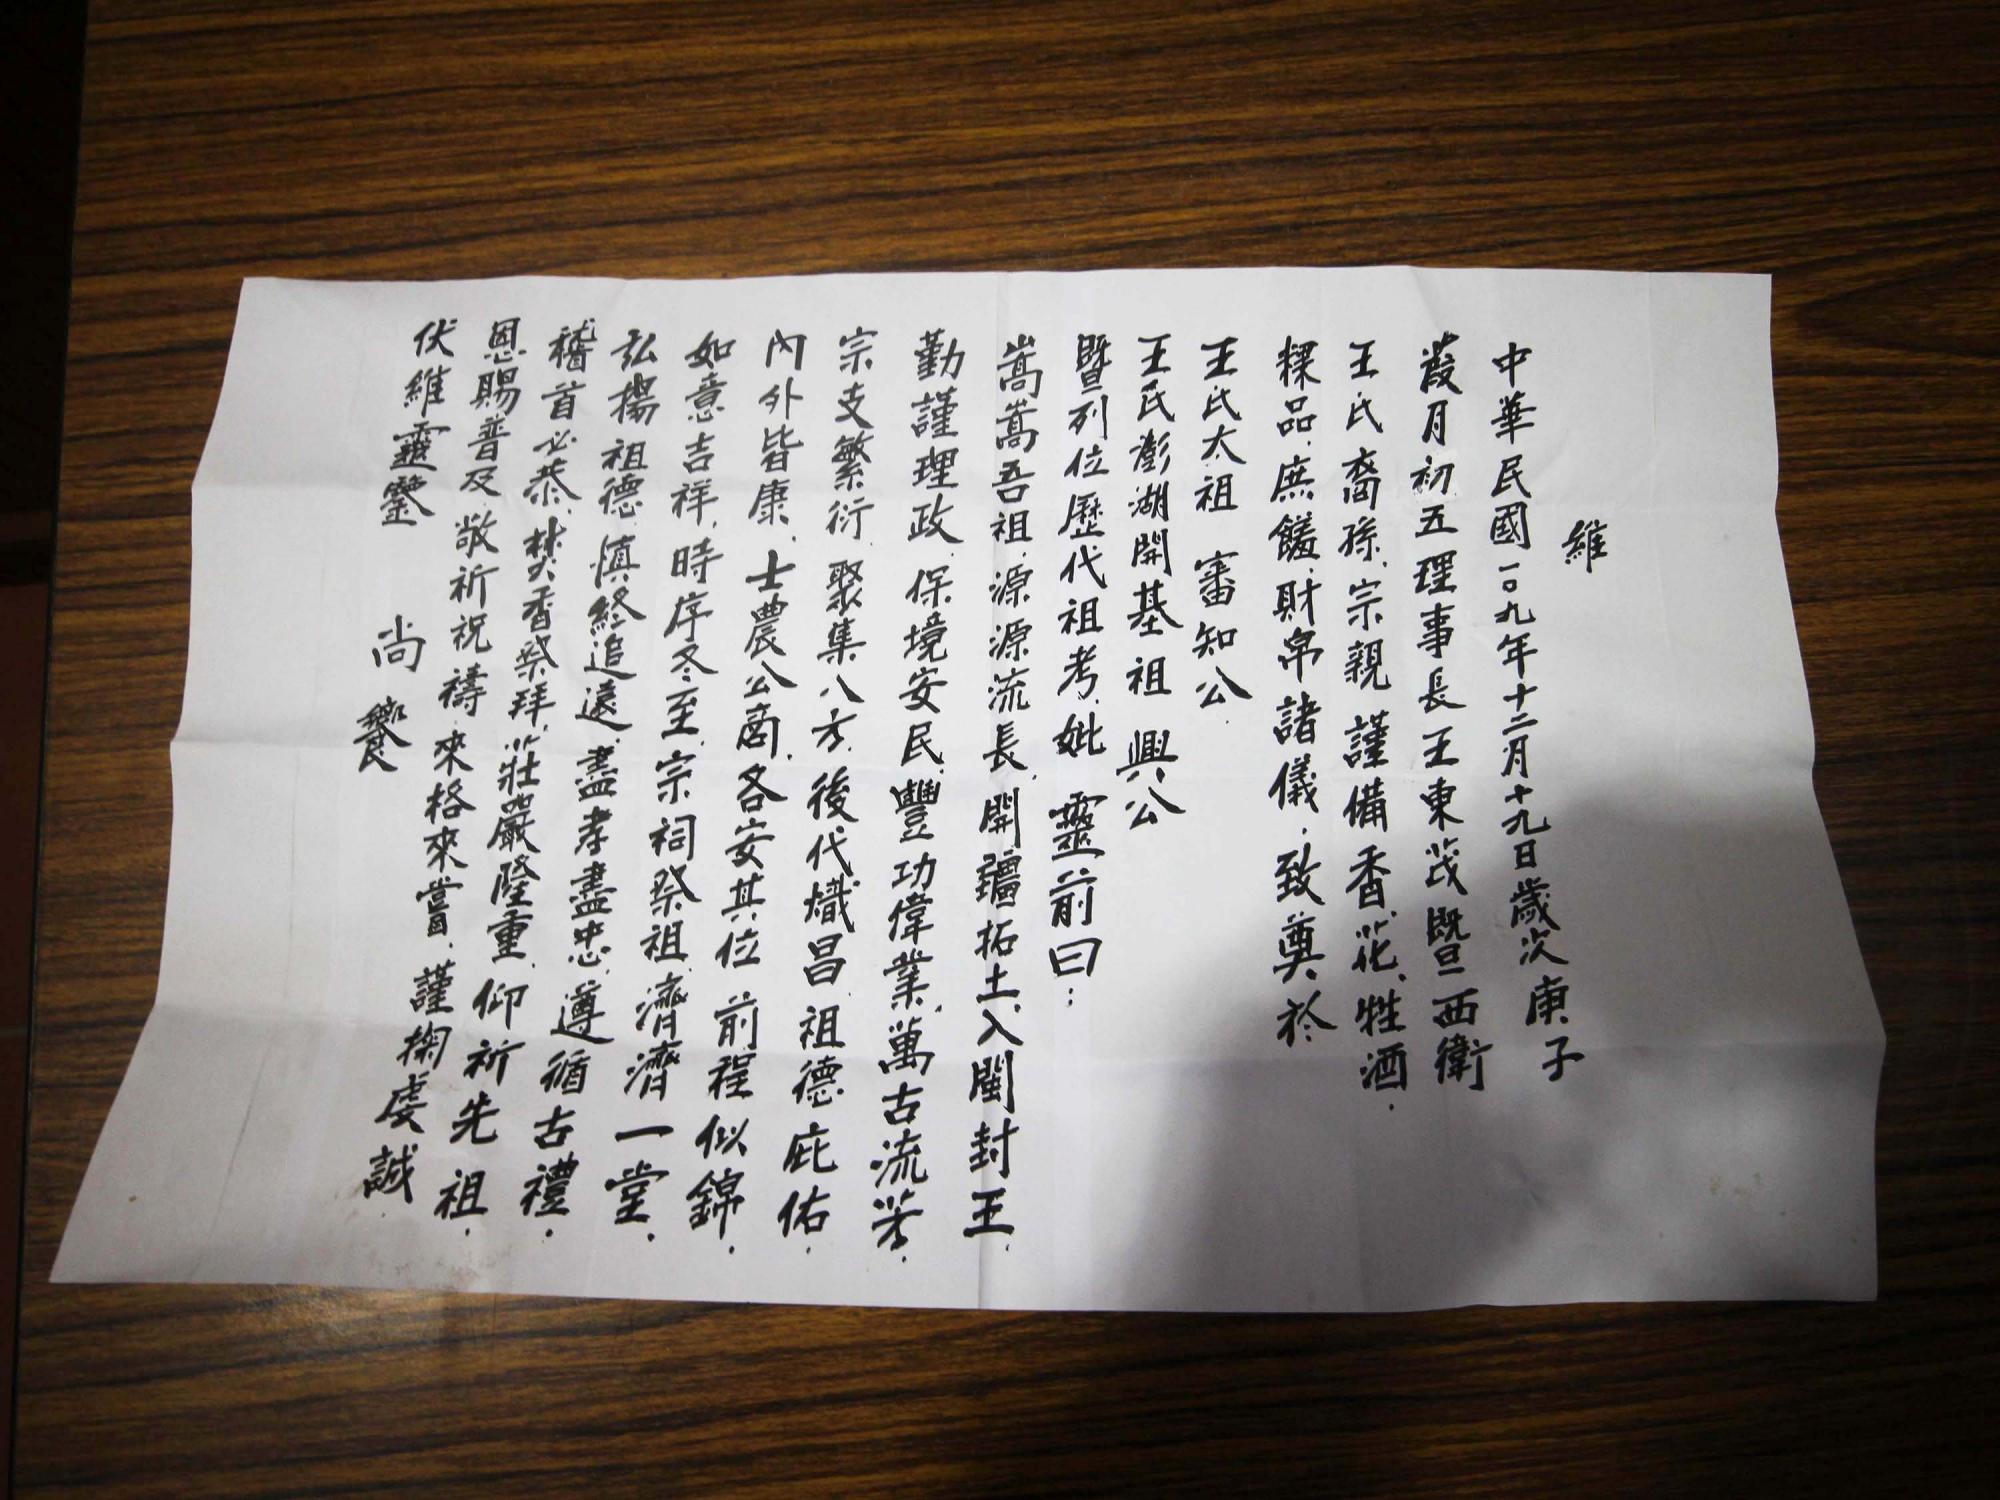 維
中華民國一○九年十二月十九日歲次庚子
葭月初五理事長王東茂暨西衛
王氏裔孫.宗親 謹備香.花.牲酒.
粿品.庶饈.財帛諸儀.致奠於
王氏太祖 審知公.
王氏澎湖開基祖 興公
暨列位歷代祖考.妣 靈前曰：
嵩嵩吾祖.源源流長.開疆拓土.入閩封王.
勤謹理政.保境安民.豐功偉業.萬古流芳.
宗支繁衍.聚集八方.後代熾昌.祖德庇佑.
內外皆康.士農公商.各安其位.前程似錦.
如意吉祥.時序冬至.宗祠祭祖.濟濟一堂.
弘揚祖德.慎終追遠.盡孝盡忠.遵循古禮.
稽首必恭.焚香祭拜.莊嚴隆重.仰祈先祖.
恩賜普及.敬祈祝禱.來格來嘗.謹掬虔誠.
伏維靈鑒 尚 饗